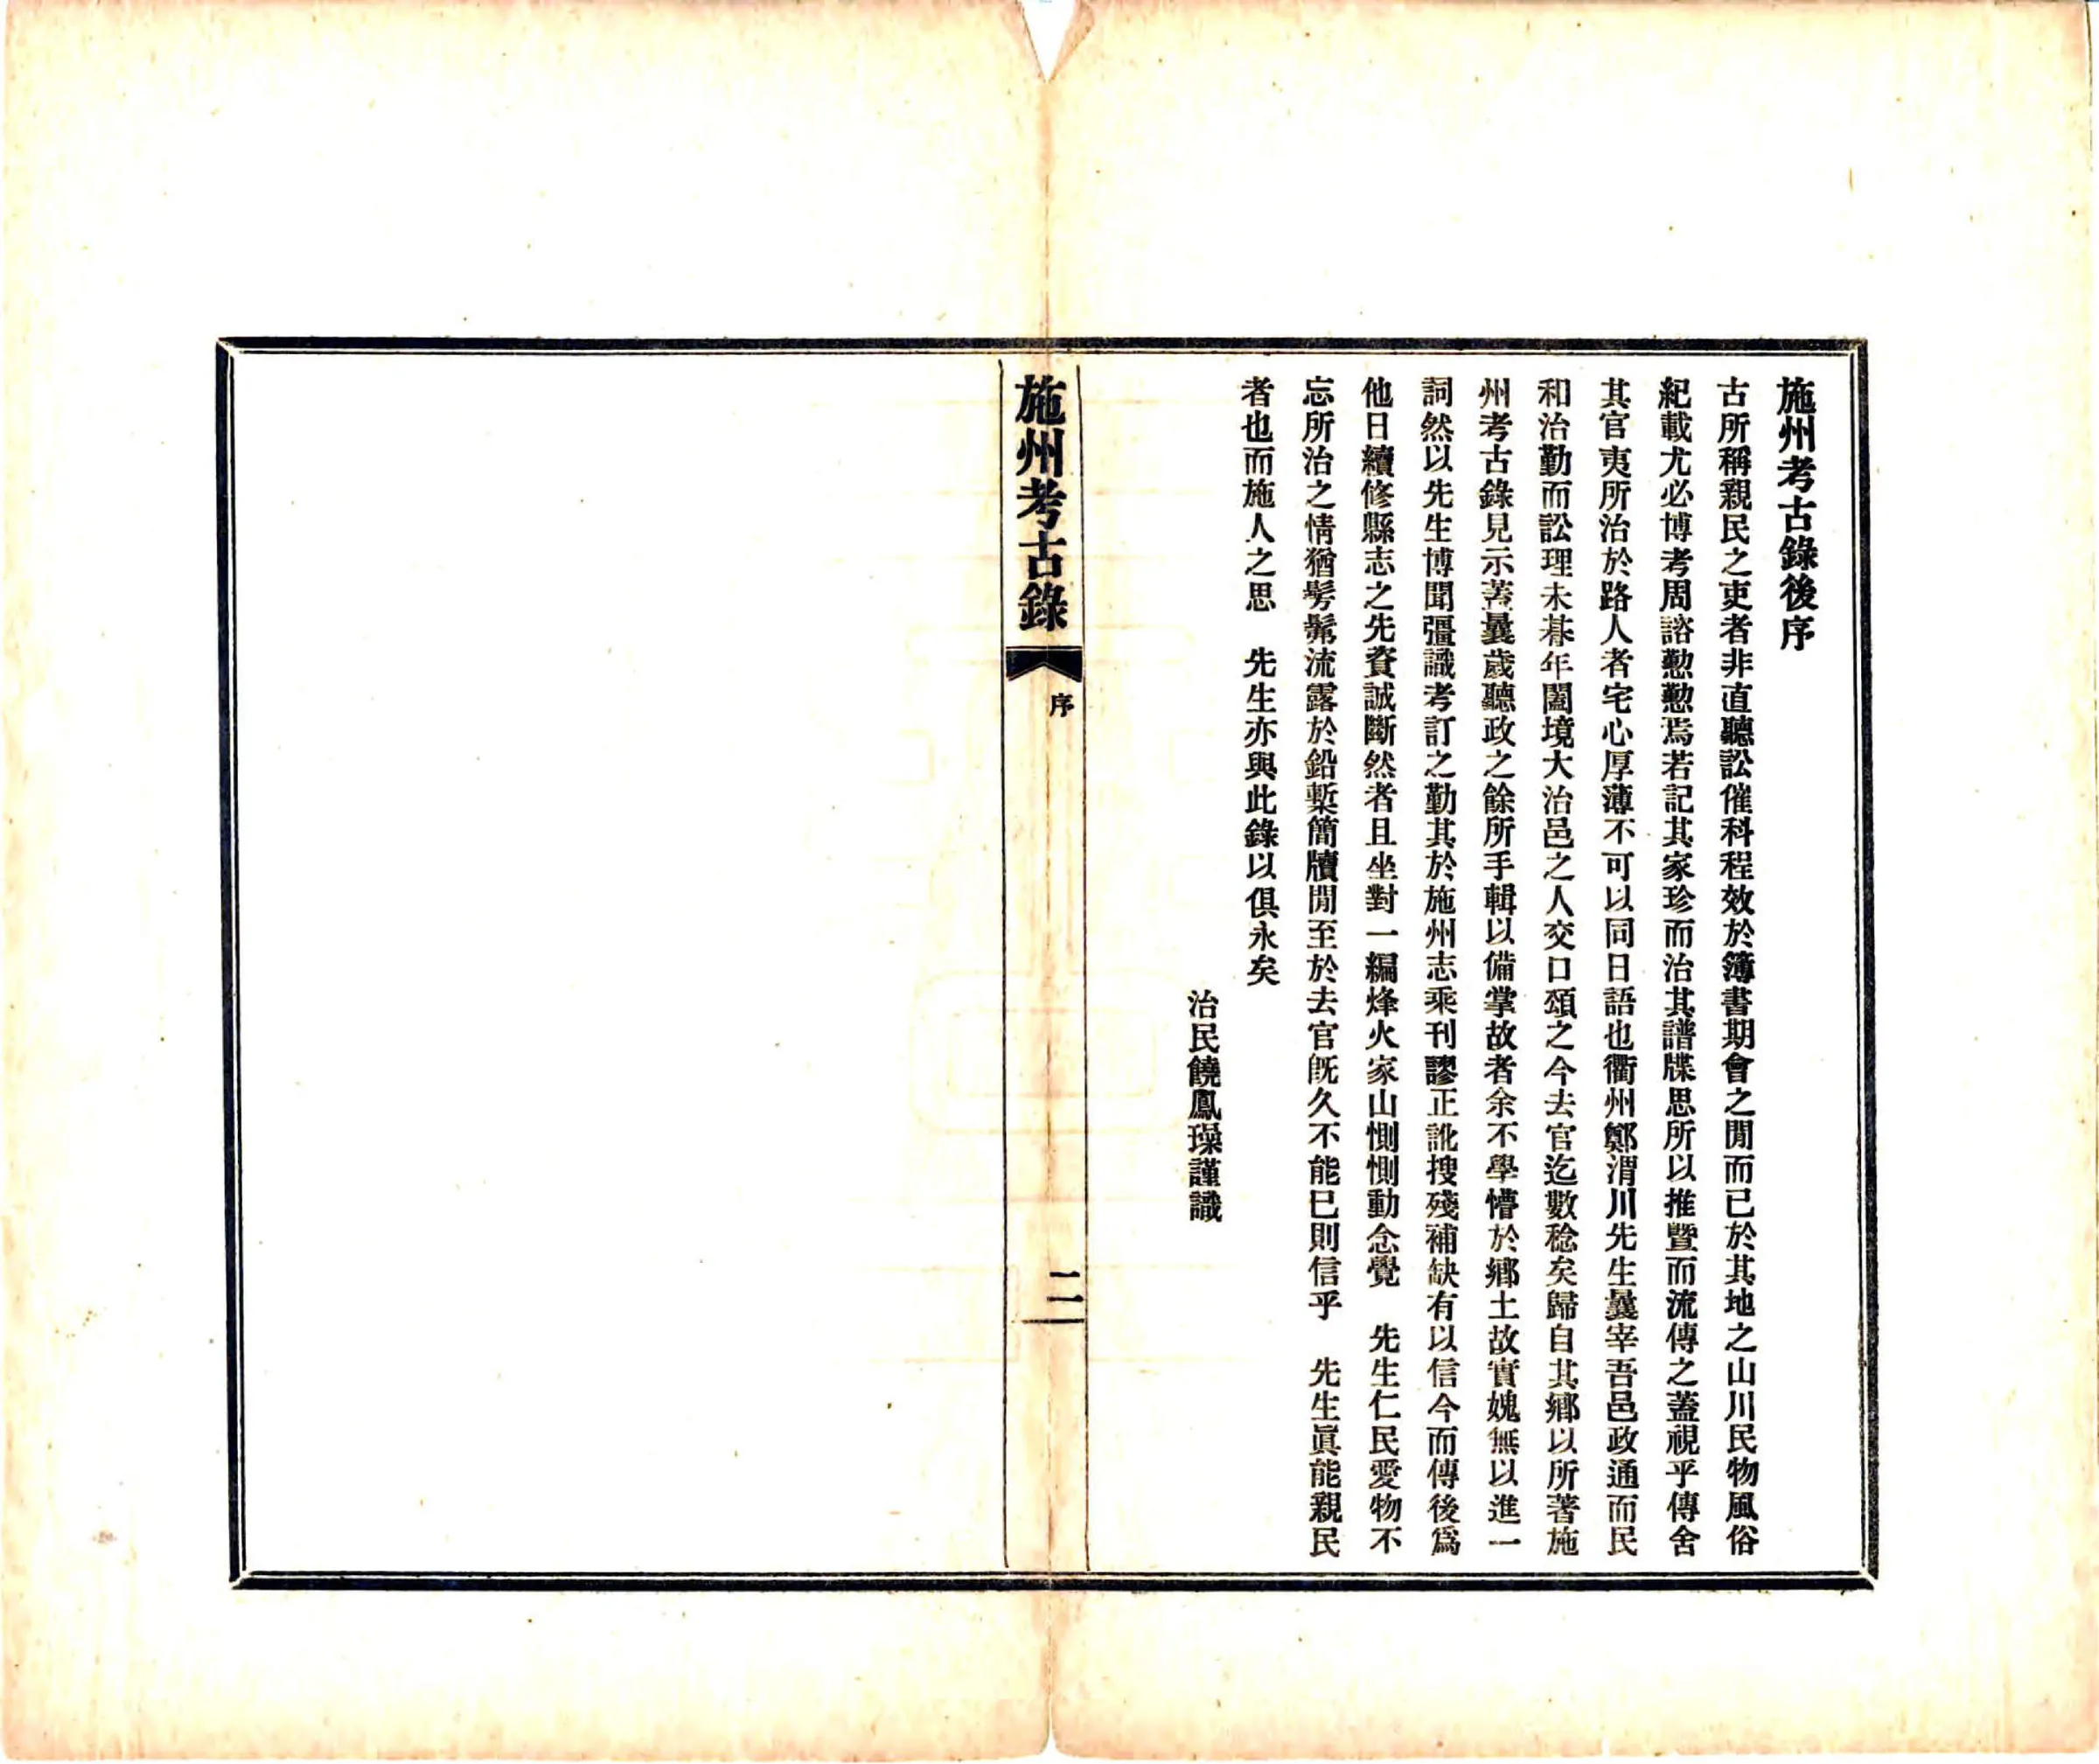 施州考古錄後序
古所稱親民之吏者非直聽訟催科程效於簿書期會之閒而已於其地之山川民物風俗
紀載尤必博考周諮懃懃焉若記其家珍而治其譜牒思所以推暨而流傳之蓋視乎傳舍
其官夷所治於路人者宅心厚薄不可以同日語也衢州鄭渭川先生曩宰吾邑政通而民
和治勤而訟理未朞年闔境大治邑之人交口頌之今去官迄數稔矣歸自其鄉以所著施
州考古錄見示蓋曩歲聽政之餘所手輯以備掌故者余不學懵於鄉土故實媿無以進一
詞然以先生博聞彊識考訂之勤其於施州志乘刊謬正訛搜殘補缺有以信今而傳後爲
他日續修縣志之先資誠斷然者且坐對一編烽火家山惻惻動念覺　先生仁民愛物不
忘所治之情猶髣髴流露於鉛槧簡牘閒至於去官旣久不能已則信乎　先生眞能親民
者也而施人之思　先生亦與此錄以俱永矣
治民饒鳳璪謹識
施州考古錄
序
二